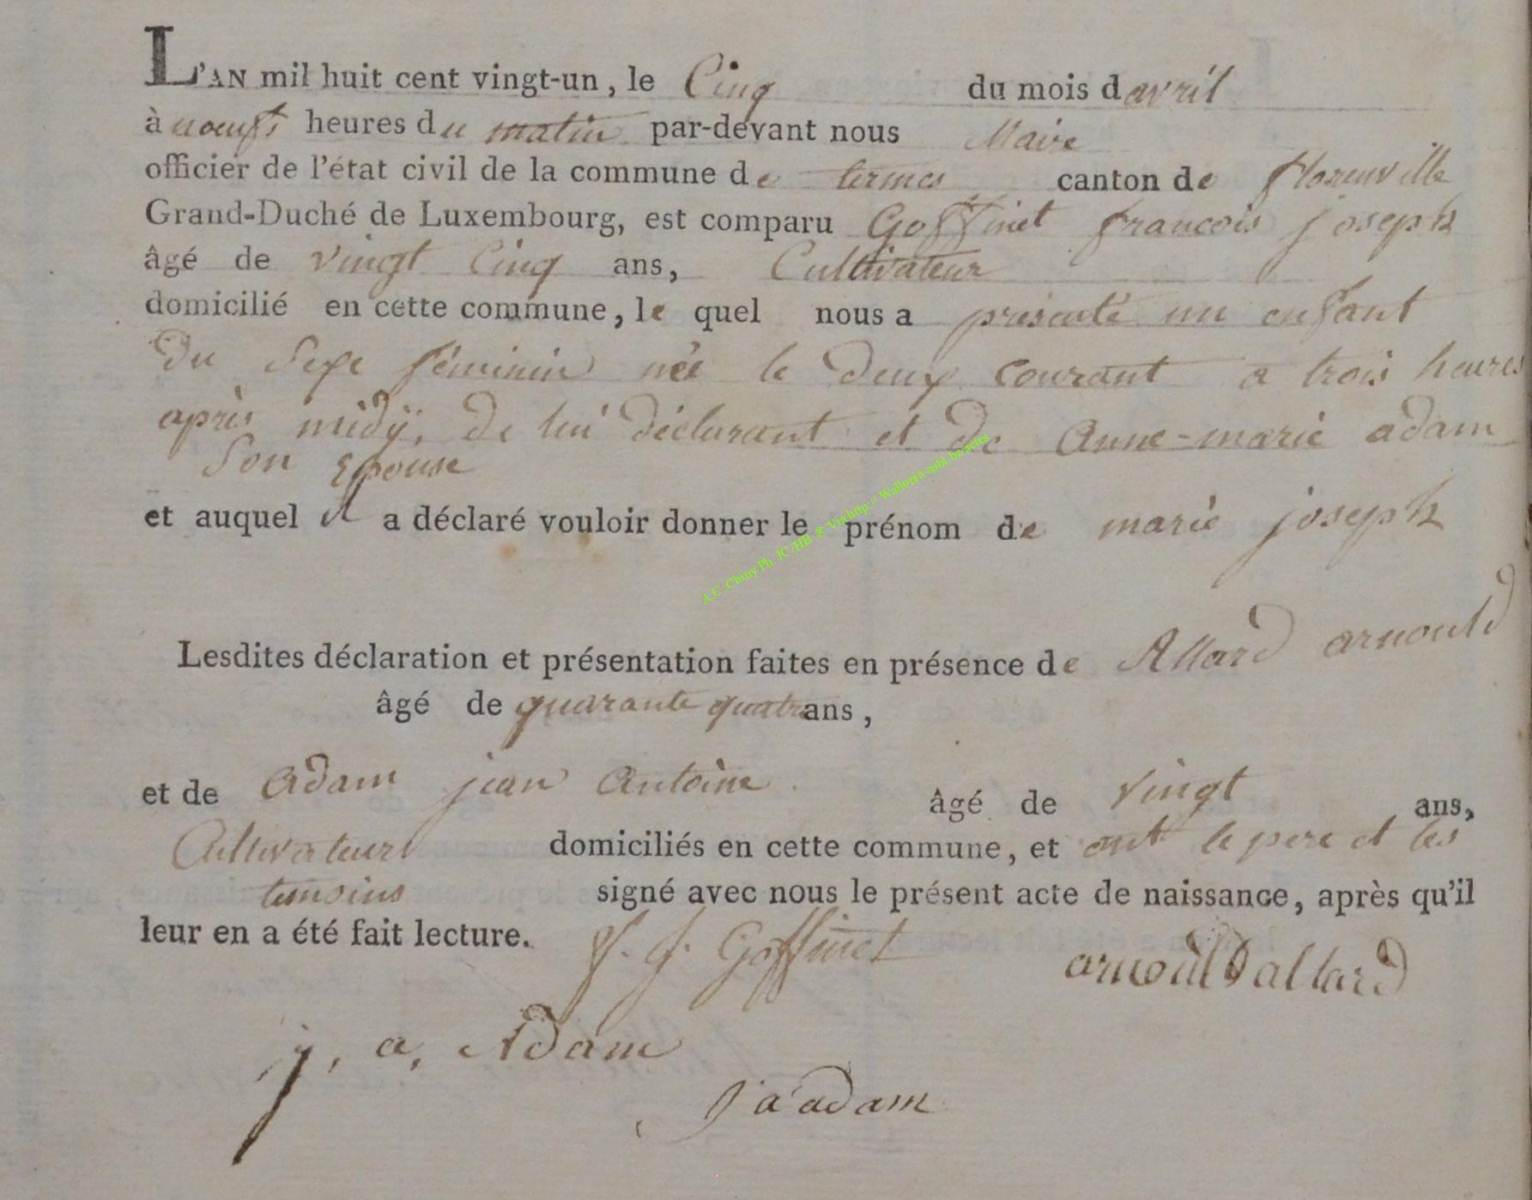 L'AN mil huit cent vingt-un, le Cinq du mois d avril
à noeuf heures du matin par-devant nous Maire
officier de l'état civil de la commune de termes canton de florenville
Grand-Duché de Luxembourg, est comparu Goffinet francois joseph
âgé de vingt Cinq ans, Cultivateur
domicilié en cette commune, le quel nous a présenté un enfant
Du Sexe féminin née le deux Courant a trois heures
après midÿ, de lui déclarant et de Anne-marie adam
Son Epouse
et auquel il a déclaré vouloir donner le prénom de marie joseph
Lesdites déclaration et présentation faites en présence de Allard arnould
âgé de quarante quatre ans,
et de Adam jean Antoine âgé de vingt ans,
Cultivateur domiciliés en cette commune, et ont le pere et les
temoins signé avec nous le présent acte de naissance, après qu'il
leur en a été fait lecture. f. j. Goffinet
arnould allard
j, a, Adam
j a adam